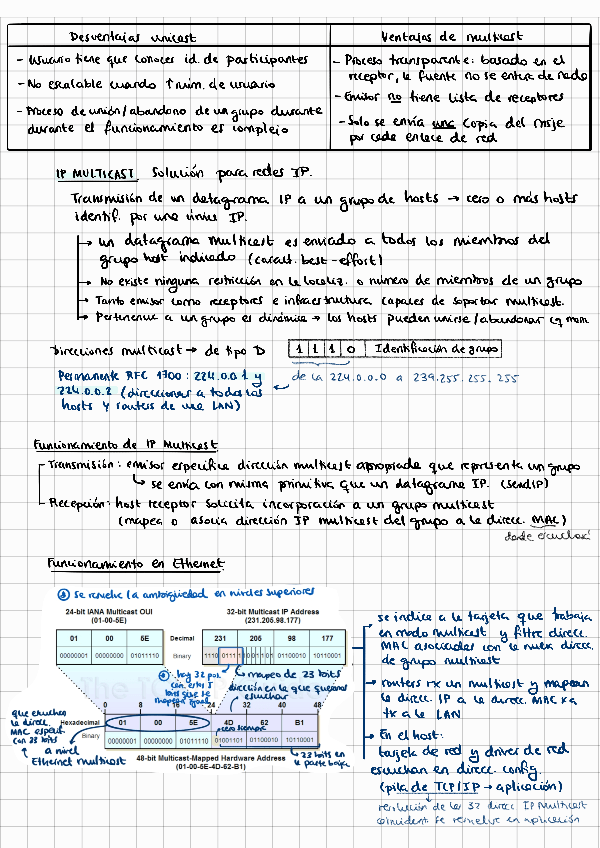 Desventajas unicast
- Usuario tiene que conocer id. de participantes
- No escalable cuando ↑ num. de usuario
- Proceso de unión/abandono de un grupo durante
durante el funcionamiento es complejo
Ventajas de multicast
- Proceso transparente: basado en el
receptor, la fuente no se entera de nada
- Emisor no tiene lista de receptores
- Solo se envía una copia del msje
por cada enlace de red
IP MULTICAST Solución para redes IP.
Transmisión de un datagrama IP a un grupo de hosts → cero o más hosts
identif. por una única IP.
→ un datagrama multicast es enviado a todos los miembros del
grupo host indicado (caract. best-effort)
→ No existe ninguna restricción en la localiz. o número de miembros de un grupo
→ Tanto emisor como receptores e infraestructura capaces de soportar multicast.
→ Pertenencia a un grupo es dinámica → los hosts pueden unirse/abandonar
Direcciones multicast → de tipo D
1 1 1 0 Identificación de grupo
Permanente RFC 1700: 224.0.0.1 y
224.0.0.2 (direccionar a todos los
hosts y routers de una LAN)
de la 224.0.0.0 a 239.255.255.255
Funcionamiento de IP Multicast
Transmisión: emisor especifica dirección multicast apropiada que representa un grupo
↳ se envía con misma primitiva que un datagrama IP. (SendIP)
Recepción: host receptor solicita incorporación a un grupo multicast
(mapea o asocia dirección IP multicast del grupo a la direcc. MAC)
donde escuchará
Funcionamiento en Ethernet
se resuelve la ambigüedad en niveles superiores
24-bit IANA Multicast OUI
(01-00-5E)
32-bit Multicast IP Address
(231.205.98.177)
01 00 5E Decimal 231 205 98 177
00000001 00000000 01011110 Binary 1110 0111 1 1001101 01100010 10110001
hay 32 por
con estos
bits que se
mapean igual
mapeo de 23 bits
dirección en la que queremos
escuchar
0 8 16 24 32 40 48
Hexadecimal 01 00 5E 4D 62 B1
cero siempre
Binary 00000001 00000000 01011110 01001101 01100010 10110001
48-bit Multicast-Mapped Hardware Address
(01-00-5E-4D-62-B1)
que escuchen
la direcc.
MAC especif.
con 23 bits
a nivel
Ethernet multicast
23 bits en
la parte baja
se indica a la tarjeta que trabaja
en modo multicast y filtre direcc.
MAC asociadas con la nueva direcc.
de grupo multicast
→ routers rx un multicast y mapean
la direcc. IP a la direcc. MAC xa
tx a la LAN
→ En el host:
tarjeta de red y driver de red
escuchan en direcc. config.
(pila de TCP/IP → aplicación)
resolución de las 32 direcc IP Multicast
coincident. se resuelve en aplicación